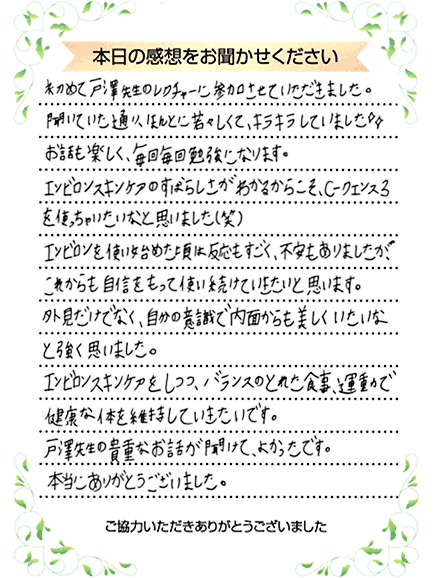 本日の感想をお聞かせください
初めて戸澤先生のレクチャーに参加させていただきました。
聞いていた通り、ほんとに若々しくて、キラキラしていました
お話も楽しく、毎回毎回勉強になります。
エンビロンスキンケアのすばらしさがわかるからこそ、C-クエンス3
を使っちゃいたいなと思いました(笑)
エンビロンを使い始めた頃は反応もすごく、不安もありましたが
これからも自信をもって使い続けていきたいと思います。
外見だけでなく、自分の意識で内面からも美しくいたいな
と強く思いました。
エンビロンスキンケアをしつつ、バランスのとれた食事、運動で
健康な体を維持していきたいです。
戸澤先生の貴重なお話が聞けて、よかったです。
本当にありがとうございました。
ご協力いただきありがとうございました